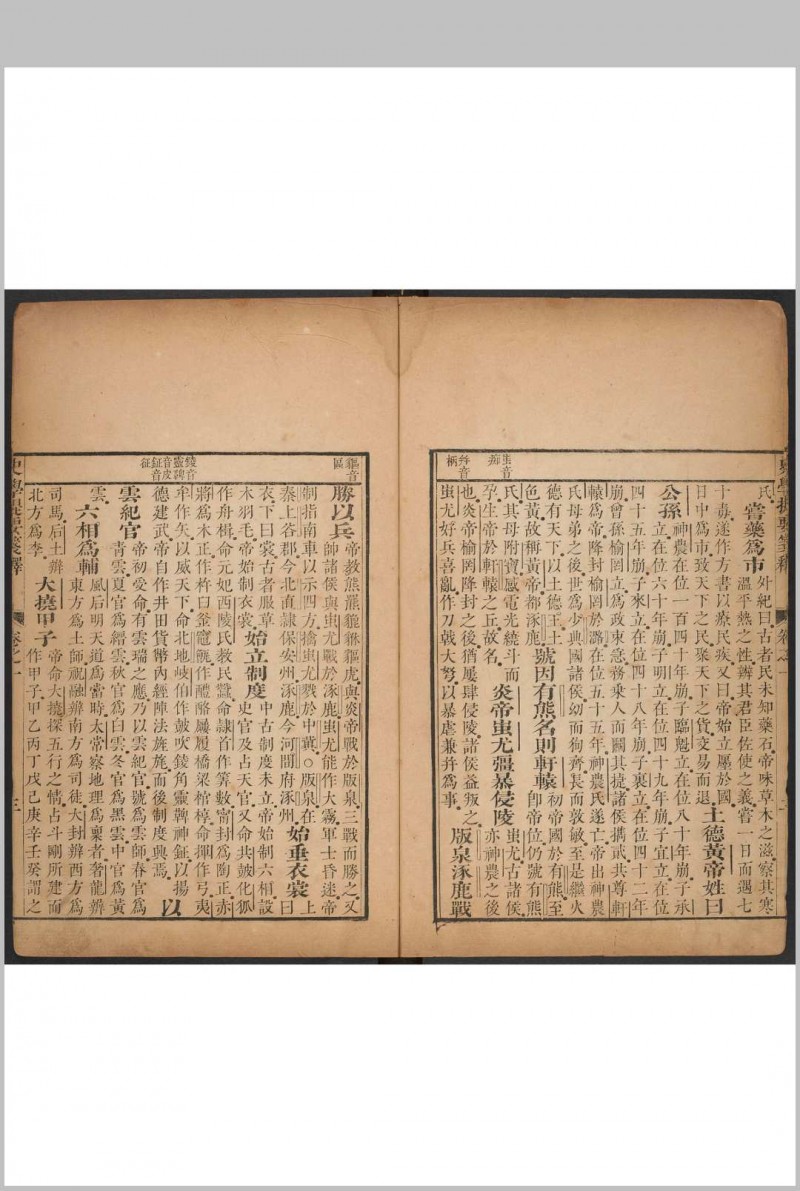 虫音
蚩
幷音
柄
氏嘗藥爲市外紀曰古者民未知藥石帝味草木之滋察其寒
溫平熱之性辨其君臣佐使之義嘗一日而遇七
十毒遂作方書以療民疾又曰帝始立廛於國
日中爲市致天下之民聚天下之貨交易而退土德黃帝姓曰
公孫神農在位一百四十年崩子臨魁立在位八十年崩子承
立在位六十年崩子明立在位四十九年崩子宜立在位
四十五年崩子來立在位四十八年崩子裏立在位四十二年
崩曾孫榆罔立爲政束急務乗人而鬭其捷諸侯攜貳共尊軒
轅爲帝降封榆罔於潞在位五十五年神農氏遂亡帝出神農
氏母弟之後世爲少典國諸侯幼而狥齊長而敦敏至是繼火
德有天下以土德王土
色黃故稱黃帝都涿鹿號因有熊名則軒轅初帝國於有熊至
卽帝位仍號有熊
氏其母附寶感電光繞斗而
孕生帝於軒轅之丘故名炎帝蚩尤彊暴侵陵蚩尤古諸侯
亦神農之後
也炎帝榆罔降封之後猶屢肆侵陵諸侯益叛之
蚩尤好兵喜亂作刀戟大弩以暴虐兼幷爲事版泉涿鹿戰
貙音
區
鉦音
征
勝以兵帝教熊羆貔貅貙虎與炎帝戰於版泉三戰而勝之又
師諸侯與蚩尤戰於涿鹿蚩尤能作大霧軍士昏迷帝
制指南車以示四方擒蚩尤戮於中冀○版泉在上
泰上谷郡今北直隷保安州涿鹿今河間府涿州始垂衣裳曰
衣下曰裳古者服草
木羽毛帝始制衣裳始立制度中古制度未立帝始制六相設
史官及占天官又命共皷化狐
作舟楫命元妃西陵氏教民蠶命隷首作筭數甯封爲陶正赤
將爲木正作杵臼釜竈甑作醴酪屨履橋梁棺椁命揮作弓夷
牟作矢以威天下命北地岐伯作皷吹錂角靈鞞神鉦以揚
德建武帝自作井田貨幣內經陣法旌旄而後制度興焉以
雲紀官帝初受命有雲瑞之應乃以雲紀官號爲雲師春官爲
青雲夏官爲縉雲秋官爲白雲冬官爲黑雲中官爲黃
雲六相爲輔風后明天道爲當時太常察地理爲稟者奢龍辨
東方爲土師祝融辨南方爲司徒大封辨西方爲
司馬后土辨
北方爲李大撓甲子帝命大撓探五行之情占斗剛所建而
作甲子甲乙丙丁戊己庚辛壬癸謂之
卷之一
三